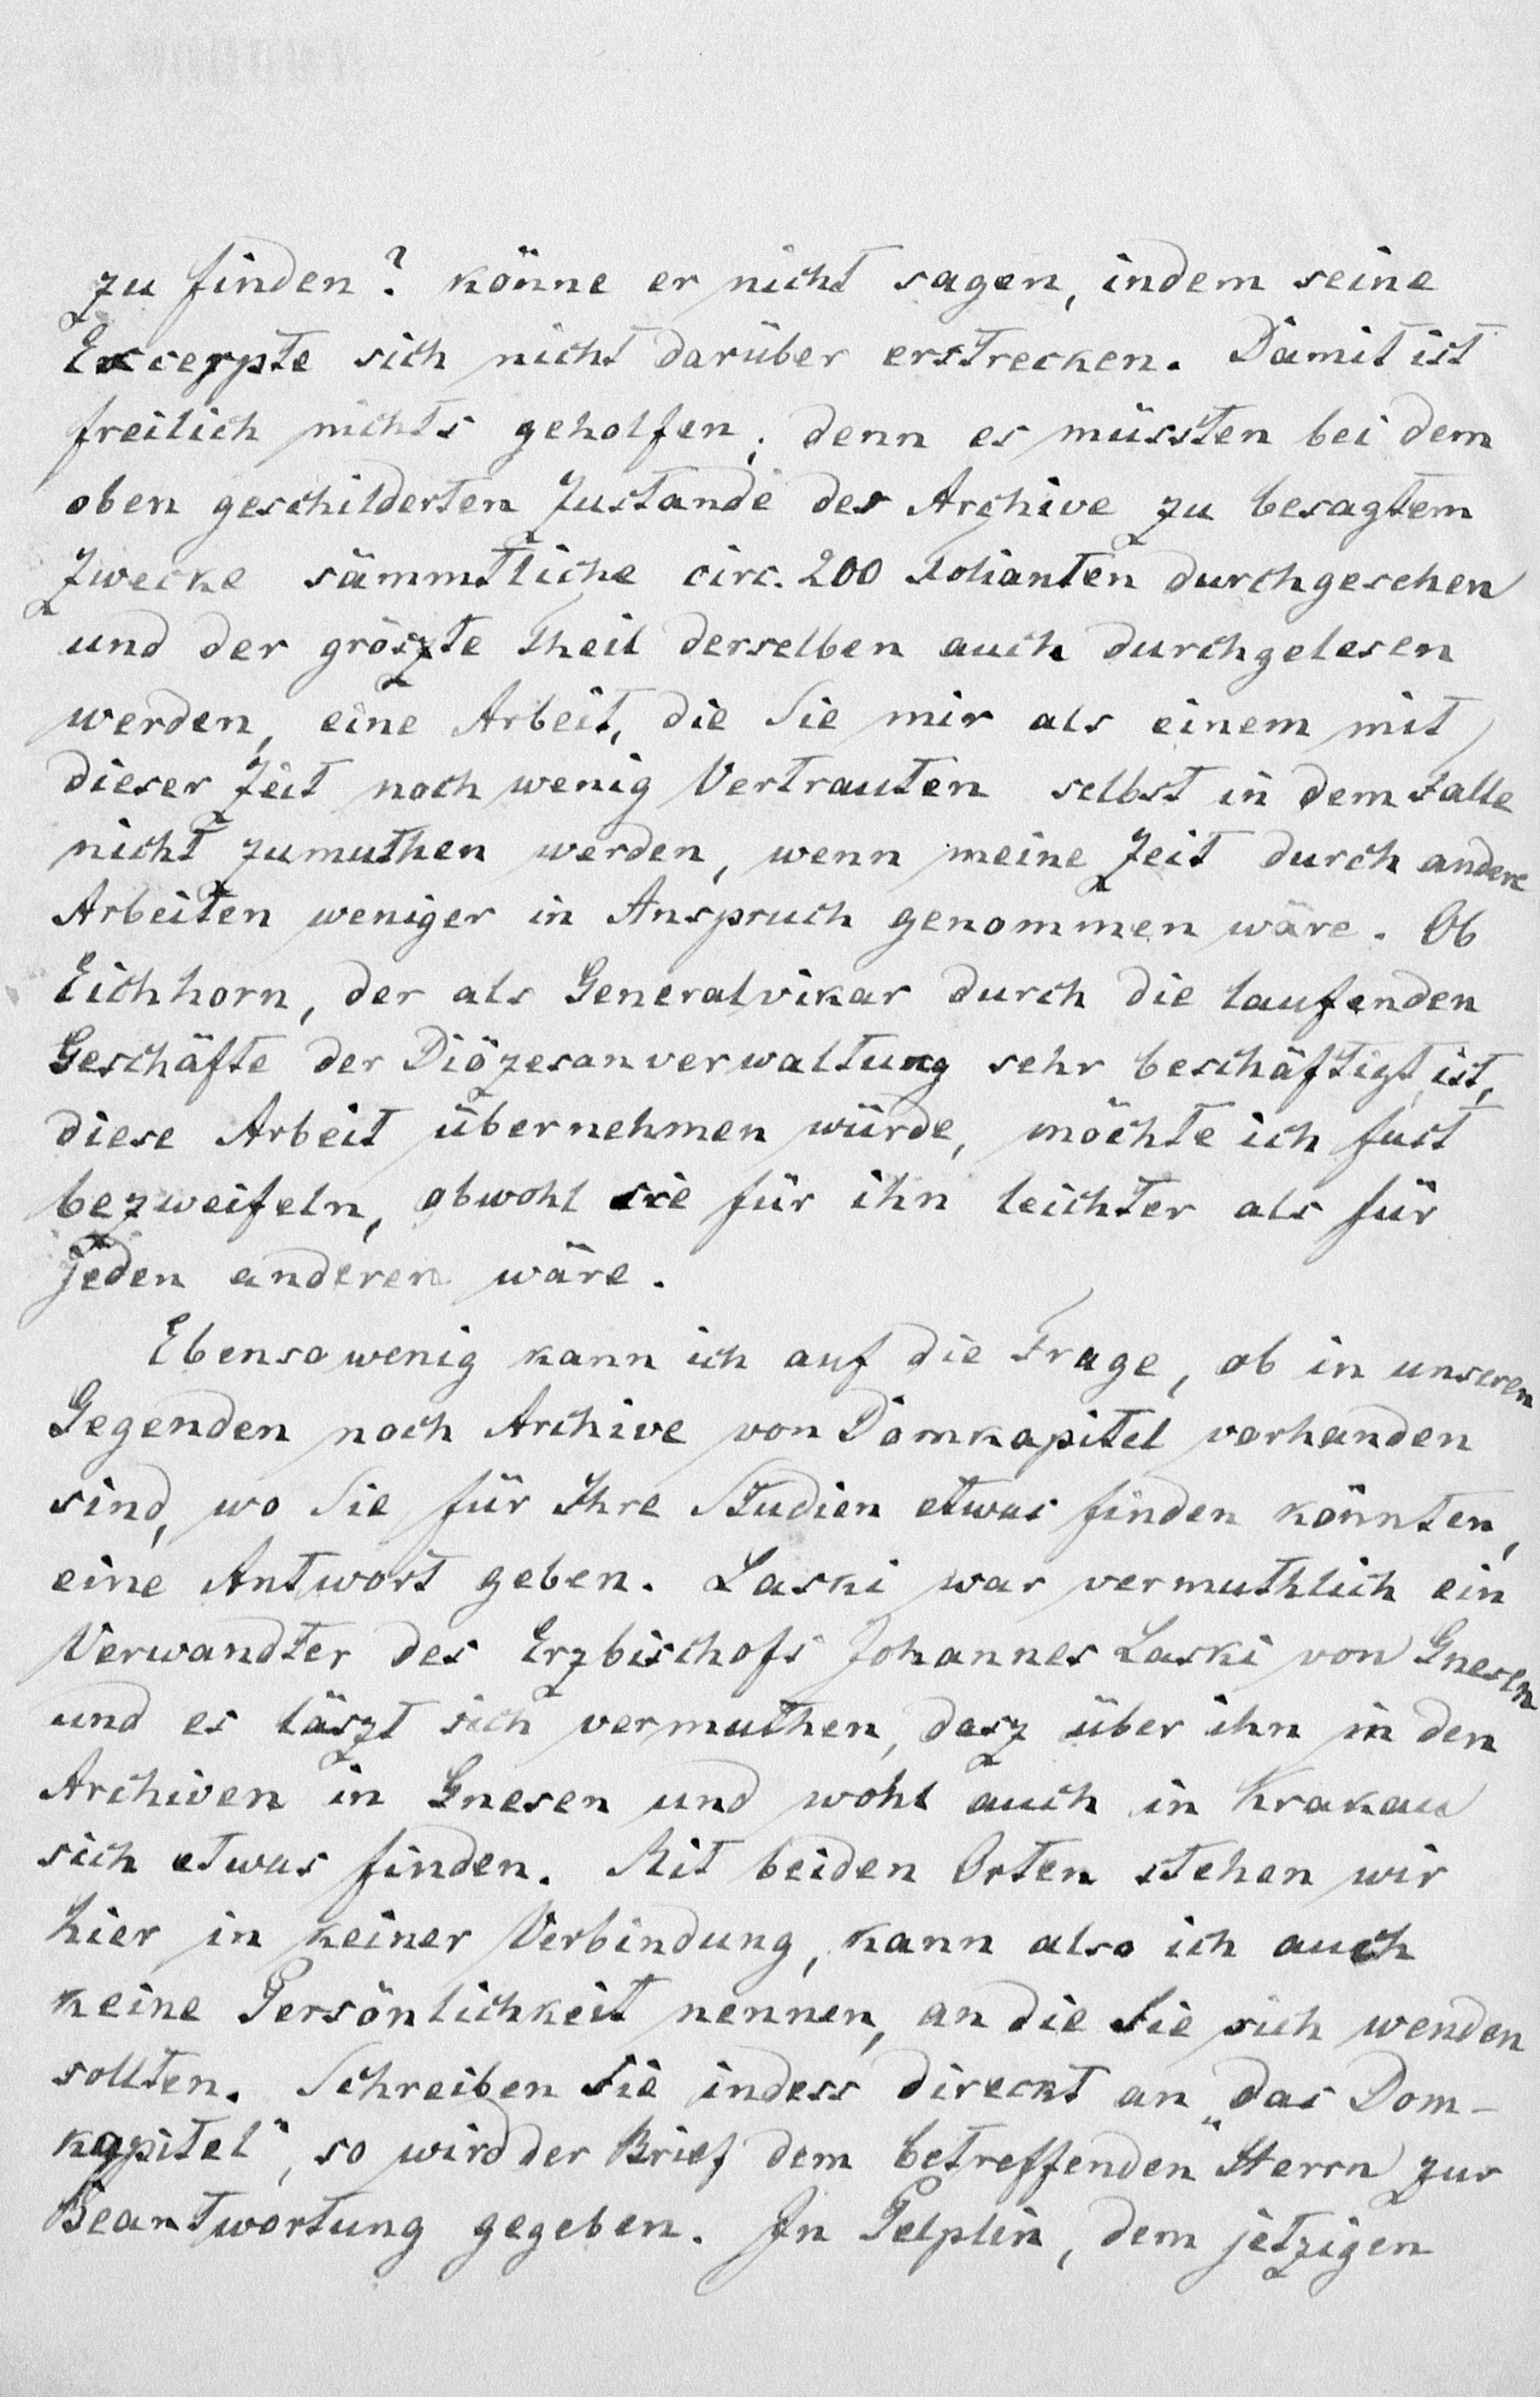 zu finden? könne er nicht sagen, indem seine
Excerpte sich nicht darüber erstrecken. Damit ist
freilich nichts geholfen; denn es müssten bei dem
oben geschilderten Zustande der Archive zu besagtem
Zwecke sämmtliche circ. 200 Folianten durchgesehen
und der gröszte Theil derselben auch durchgelesen
werden, eine Arbeit, die Sie mir als einem mit
dieser Zeit noch wenig Vertrauten selbst in dem Falle
nicht zumuthen werden, wenn meine Zeit durch andere
Arbeiten weniger in Anspruch genommen wäre. Ob
Eichhorn, der als Generalvikar durch die laufenden
Geschäfte der Diözesanverwaltung sehr beschäftigt ist,
diese Arbeit übernehmen würde, möchte ich fast
bezweifeln, obwohl sie für ihn leichter als für
jeden anderen wäre.
Ebensowenig kann ich auf die Frage, ob in unseren
Gegenden noch Archive von Domkapitel vorhanden
sind, wo Sie für Ihre Studien etwas finden könnten,
eine Antwort geben. Laski war vermuthlich ein
Verwandter des Erzbischofs Johannes Laski von Gnesen
und es läszt sich vermuthen, dasz über ihn in den
Archiven in Gnesen und wohl auch in Krakau
sich etwas finden. Mit beiden Orten stehen wir
hier in keiner Verbindung, kann also ich auch
keine Persönlichkeit nennen, an die Sie sich wenden
sollten. Schreiben Sie indess direckt an „das Dom-
kapitel", so wird der Brief dem betreffenden Herrn zur
Beantwortung gegeben. In Pelplin, dem jetzigen